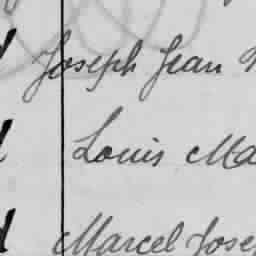 Joseph Jean
Louis Ma
Marcel Jose